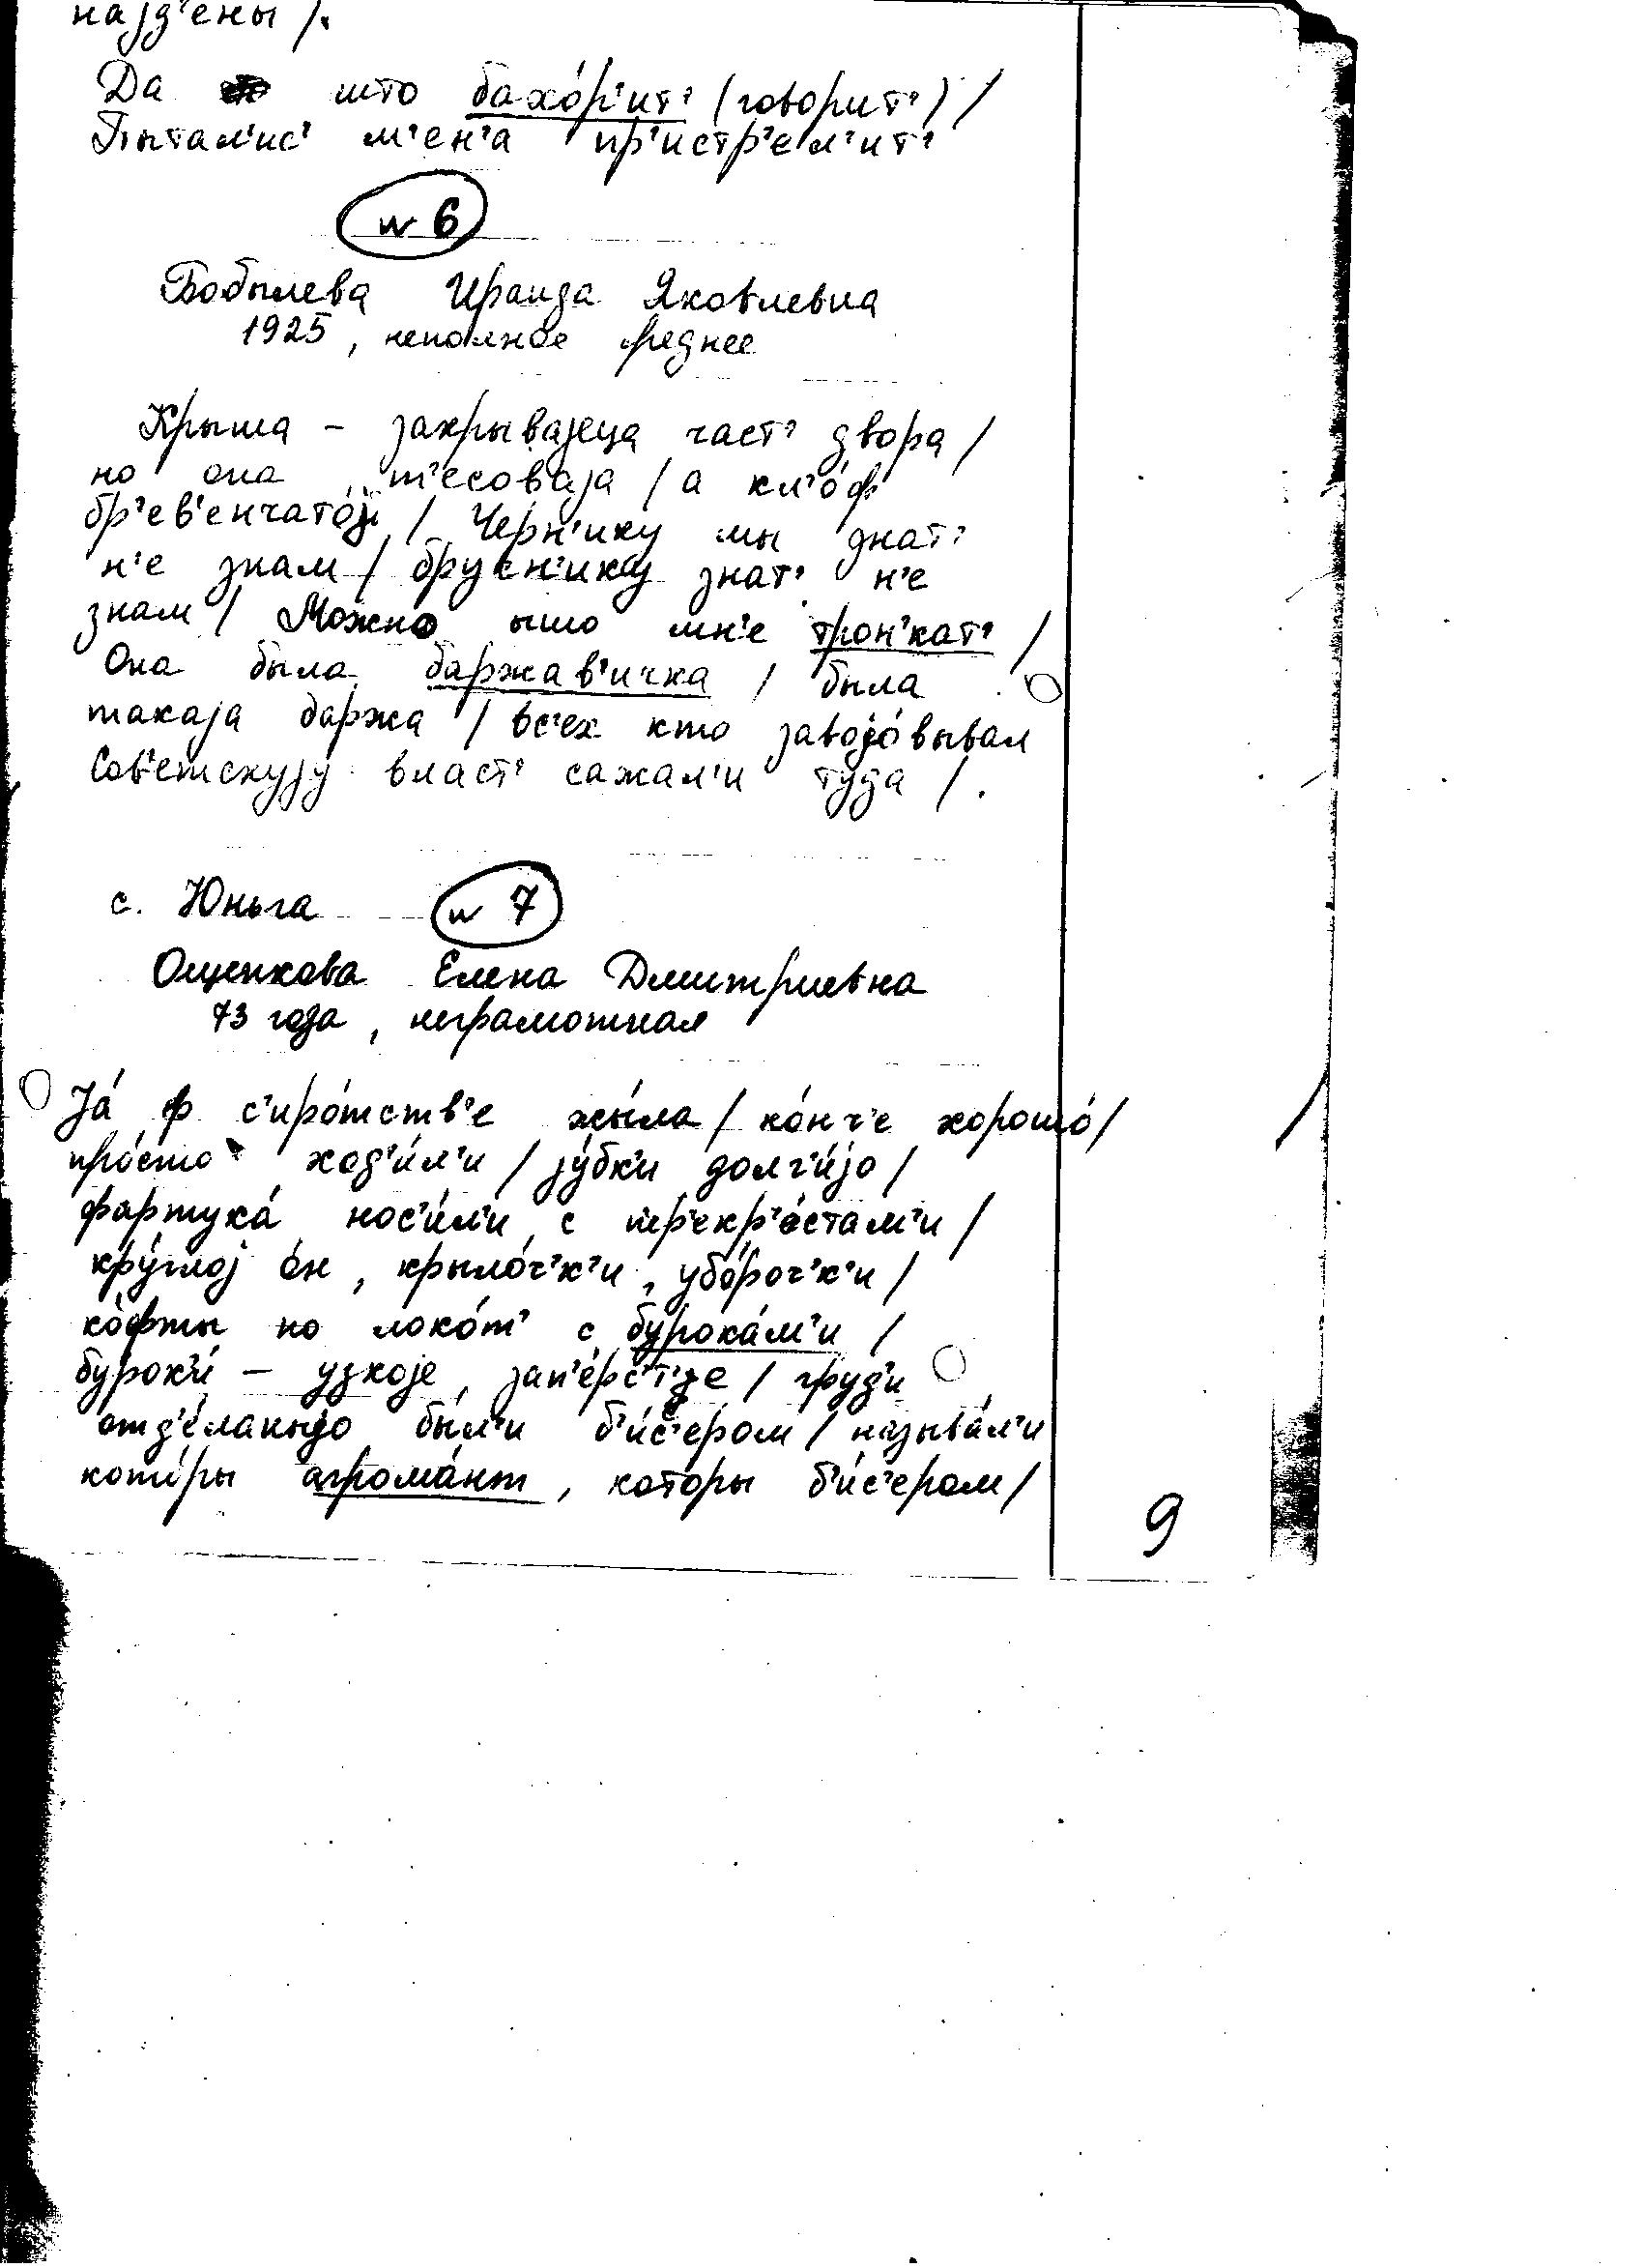 најд'ены /.
Да што бахо́р'ит' (говорит') /
Пытал'ис' м'ен'а пр'истр'ел'ит'
N 6
Бобылева Ираида Яковлевна
1925, неполное среднее
Крыша – закрывајеца част' двора /
но она т'есоваја / а кл'о́ф
бр'ев'енчатој / Черн'ику мы знат'
н'е знам / брус'н'ику знат' н'е
знам / Можно ышо мн'е трон'кат' /
Она была баржав'ичка / была
такаја баржа / вс'ех кто завојо́вывал
Сов'етскују власт' сажал'и туда /.
с. Юньга N 7
Ощепкова Елена Дмитриевна
73 года, неграмотная
Jа́ ф с'иро́тств'е жы́ла / ко́нч'е хорошо́ /
про́сто ход'и́л'и / jу́бк'и долг'и́јо /
фартука́ нос'и́л'и с п'ер'екр'о́стам'и /
кру́глој он, крыло́ч'к'и, убо́роч'к'и /
ко́фты по локо́т' с бурока́м'и /
бурок'и́ – узкоје, зап'е́рс'т'јe / груд'и
отд'е́ланыjо бы́л'и б'и́с'ером / называ́л'и
кото́ры аграма́нт, которы б'и́с'ером /
9